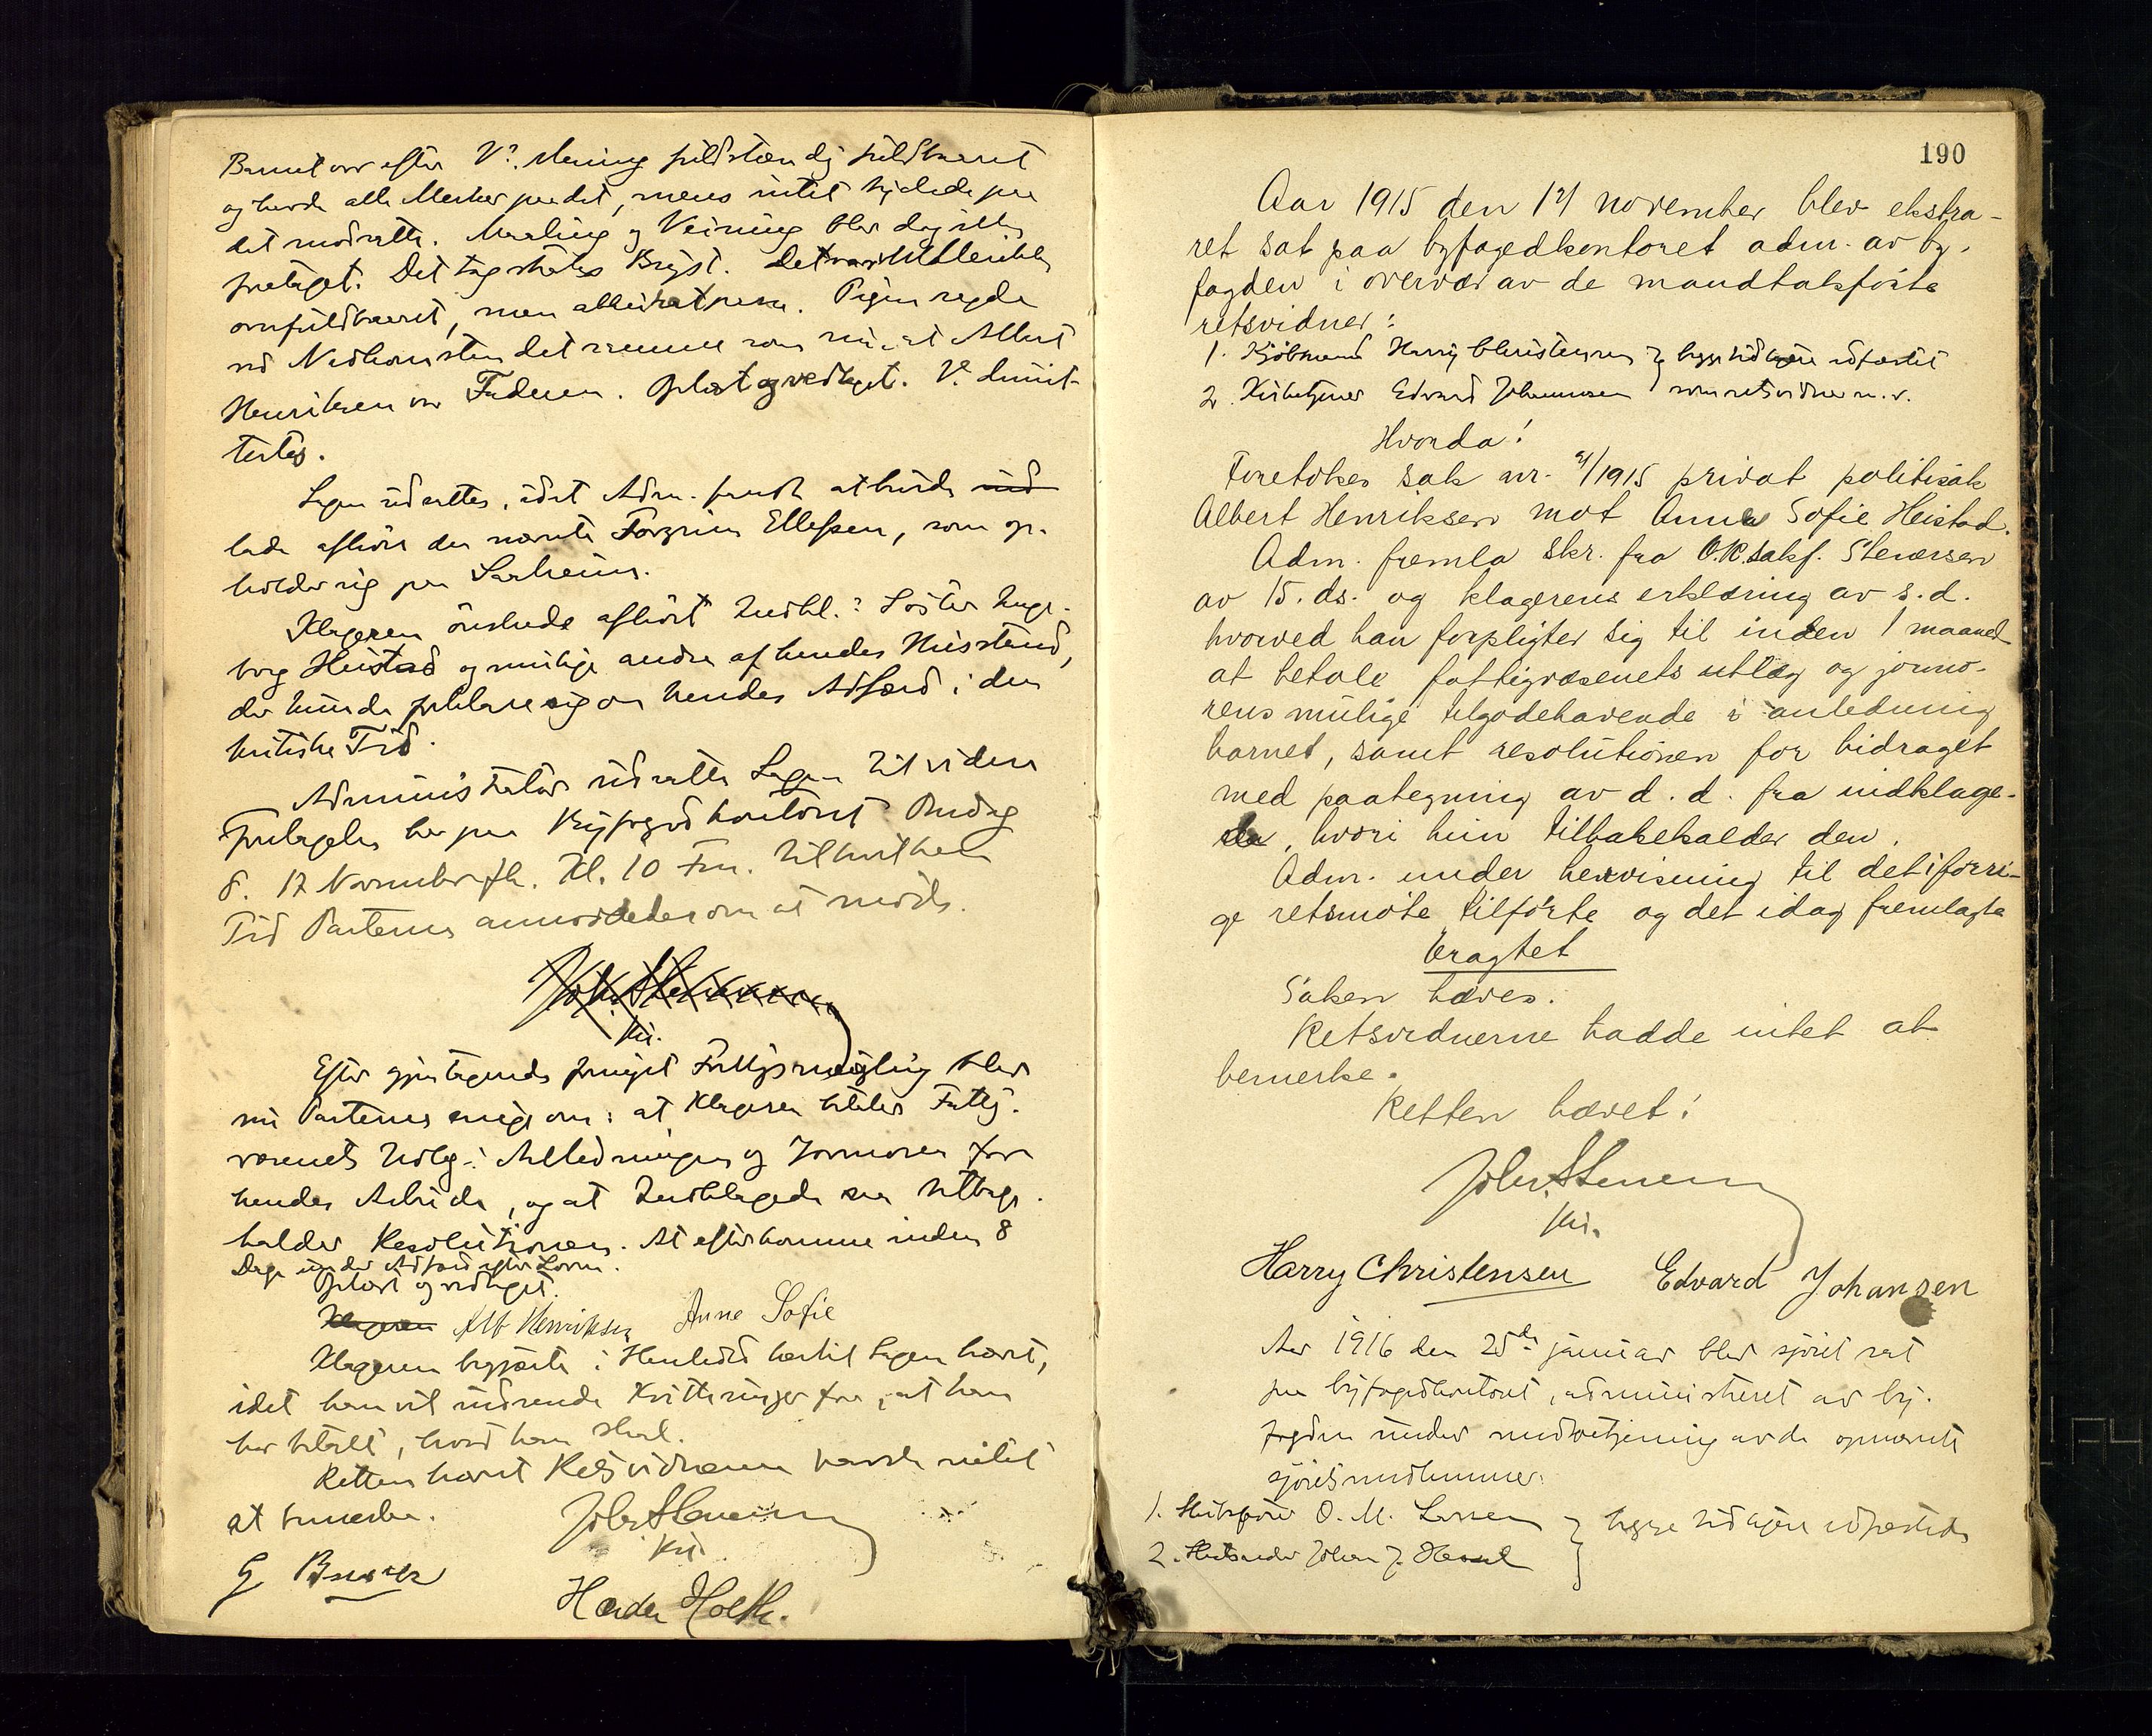 Barnet var efter V? Mening fuldstændig fuldbaaret
og havde alle Merker paa det, mens intet tydede paa
det modsatte. Maaling og Veining blev dog ikke
foretaget. Det tog straks Bryst. Det var
om fuldbaaret, men Pigen sagde
ved Nedkomsten det samme som nu, at Albert
Henriksen var Faderen. Oplæst og vedtaget. V? dimit-
tertes.
Sagen udsattes, idet Adm. fandt at burde
lade afhöre den nævnte Ellefsen, som op-
holder sig paa
Klageren önskede afhört Indkl.? Söster Inge-
borg Heistad og mulige andre af hendes Husstand,
der kunde forklare sig om hendes Adfærd i den
kritiske Tid.
Administrator udsatte Sagen til videre
Foretagelse her paa Byfogedkontoret Onsdag
d. 17 November fk. Kl. 10 Fm. til hvilken
Tid Parterne anmodedes om at möde.
Efter gjentagende Mægling blev
nu Parterne enige om: at Klageren betaler Fattig-
væsenets Udlæg i Anledningen og Jormoren for
hendes Arbeide, og at Indklagede saa tilbage-
kalder Resolutionen. At efterkomme inden 8
Dage under Adfærd efter Loven.
Oplæst og vedtaget.
Klageren Alb Henriksen Anne Sofie
Klageren begjærte i Henhold hertil Sagen hævet,
idet han vil indsende Kvitteringer for, at han
har betalt, hvad han skal.
Retten hævet Retsvidnerne havde intet
at bemerke.
Harder Holth.
190
Aar 1915 den 17 november blev ekstra-
ret sat paa byfogedkontoret adm. av by-
fogden i overvær av de mandtalsførte
retsvidner:
1. Kjöbmand Harry Christensen } begge tidligere edfæstet
2. Edvard Johannsen som retsvidner n. v.
Hvorda!
Foretokes sak nr. /1915 privat politisak
Albert Henriksen mot Anna Sofie Heistad.
Adm. fremla skr. fra O.R.sakf. Stenersen
av 15. ds. og klagerens erklæring av s. d.
hvorved han forpligter sig til inden 1 maaned
at betale fattigvæsenets utlæg og jormo-
rens mulige tilgodehavende i anledning
barnet, samt resolutionen for bidraget
med paategning av d. d. fra indklage-
de, hvori hun tilbakekalder den.
Adm. under henvisning til det i forri-
ge retsmøte tilførte og det idag fremlagte
Eragtet
Saken hæves.
Retsvidnerne hadde intet at
bemerke.
Retten hævet!
Harry Christensen Edvard Johansen
Aar 1916 den 25de januar blev sjöret sat
paa byfogedkontoret, administreret av by-
fogden under medbetjening av de opnævnte
sjöretsmedlemmer:
1. Skibsförer O. M. Larsen } begge tidligere edfæstede
2. Johan J.